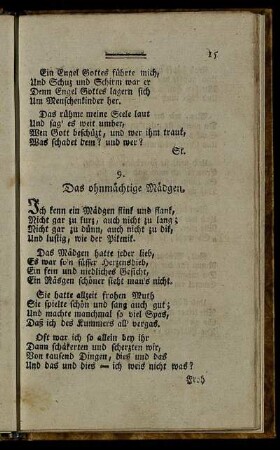 15
Ein Engel Gottes führte mich,
Und Schuz und Schirm war er
Denn Engel Gottes lagern sich
Um Menschenkinder her.
Das rühme meine Seele laut
Und sag' es weit umher,
Wen Gott beschüzt, und wer ihm traut,
Was schadet dem? und wer?
Sr.
9.
Das ohnmächtige Mädgen.
Ich kenn ein Mädgen flink und flank,
Nicht gar zu kurz, auch nicht zu lang;
Nicht gar zu dünn, auch nicht zu dik,
Und lustig, wie der Piknik.
Das Mädgen hatte jeder lieb,
Es war so'n süsser Herzensdieb,
Ein fein und niedliches Gesicht,
Ein Näsgen schöner sieht man's nicht.
Sie hatte allzeit frohen Muth
Sie spielte schön und sang auch gut;
Und machte manchmal so viel Spas,
Daß ich des Kummers all' vergas.
Oft war ich so allein bey ihr
Dann schäkerten und scherzten wir,
Von tausend Dingen, dies und das
Und das und dies — ich weis nicht was?
Noch